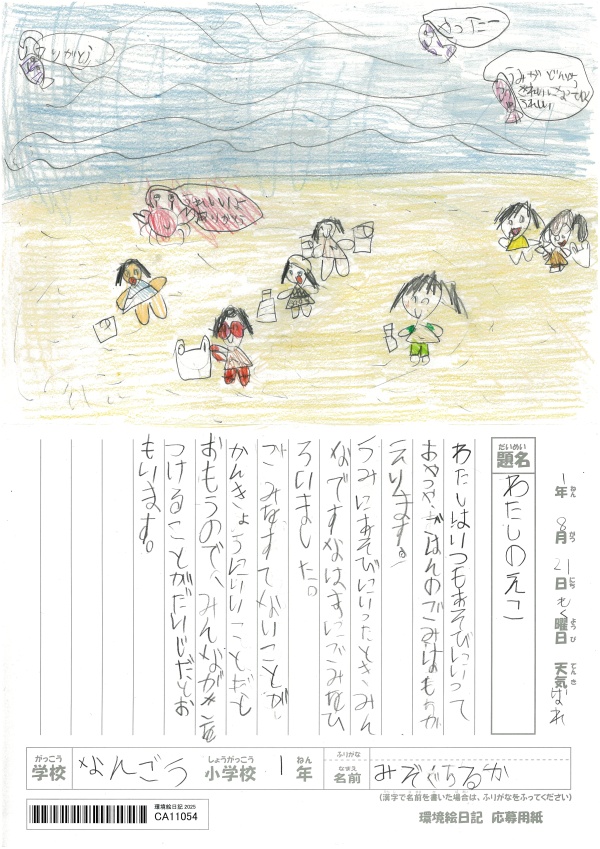 りがとう
やったー
うみがどんどん
きれいになってわ
うれしい
うれしいよ
ありがとう
1年 8月 21日 もく曜日 天気 ばれ
ねん がつ にち ようび てんき
だいめい
題名
わたしのえこ
わたしはいつもあそびにいって
おやつやごはんのごみはもちか
えります。
うみにあそびにいったときみん
なですなはまにごみをひ
ろいました。
ごみをすてないことが
かんきょうにいいことだと
おもうので、みんなが気を
つけることがだいじだとお
もいます。
がっこう
学校
なんごう
しょうがっこう
小学校
1
ねん
年
ふりがな
なまえ
名前
みぞぐちるか
(漢字で名前を書いた場合は、ふりがなをふってください)
環境絵日記 2025
CA11054
環境絵日記 応募用紙